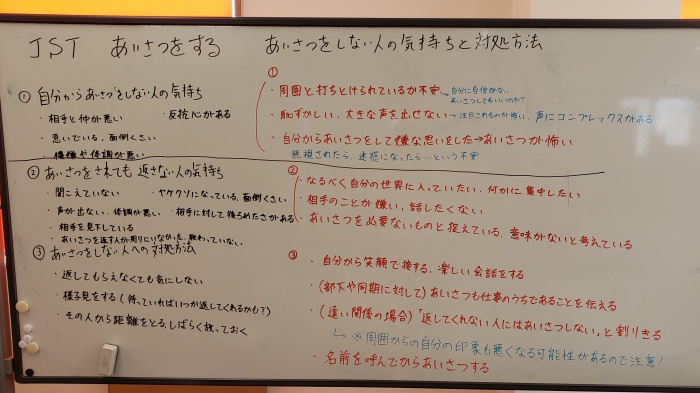 JST　あいさつをする　あいさつをしない人の気持ちと対処方法
① 自分からあいさつをしない人の気持ち
・相手と仲が悪い　・反抗心がある
・急いでいる，面倒くさい
・機嫌や体調が悪い
② あいさつをされても返さない人の気持ち
・聞こえていない　・ヤケクソになっている，面倒くさい
・声が出ない，体調が悪い　・相手に対して後ろめたさがある
・相手を見下している
・あいさつを返す人が周りにいなかった，教わっていない
③ あいさつをしない人への対処方法
・返してもらえなくても気にしない
・様子見をする（待っていればいつか返してくれるかも？）
・その人から距離をとる，しばらく放っておく
①
・周囲と打ちとけられているか不安→自分に自信がない
あいさつしてもいいのか？
・恥ずかしい，大きな声を出せない→注目されるのが怖い，声にコンプレックスがある
・自分からあいさつをして嫌な思いをした→あいさつが怖い
無視されたら，迷惑になったら…という不安
②
・なるべく自分の世界に入っていたい，何かに集中したい
・相手のことが嫌い，話したくない
・あいさつを必要ないものと捉えている，意味がないと考えている
③
・自分から笑顔で接する，楽しい会話をする
・（部下や同期に対して）あいさつも仕事のうちであることを伝える
・（遠い関係の場合）「返してくれない人にはあいさつしない」と割りきる
↳※周囲からの自分の印象も悪くなる可能性があるので注意！
・名前を呼んでからあいさつする